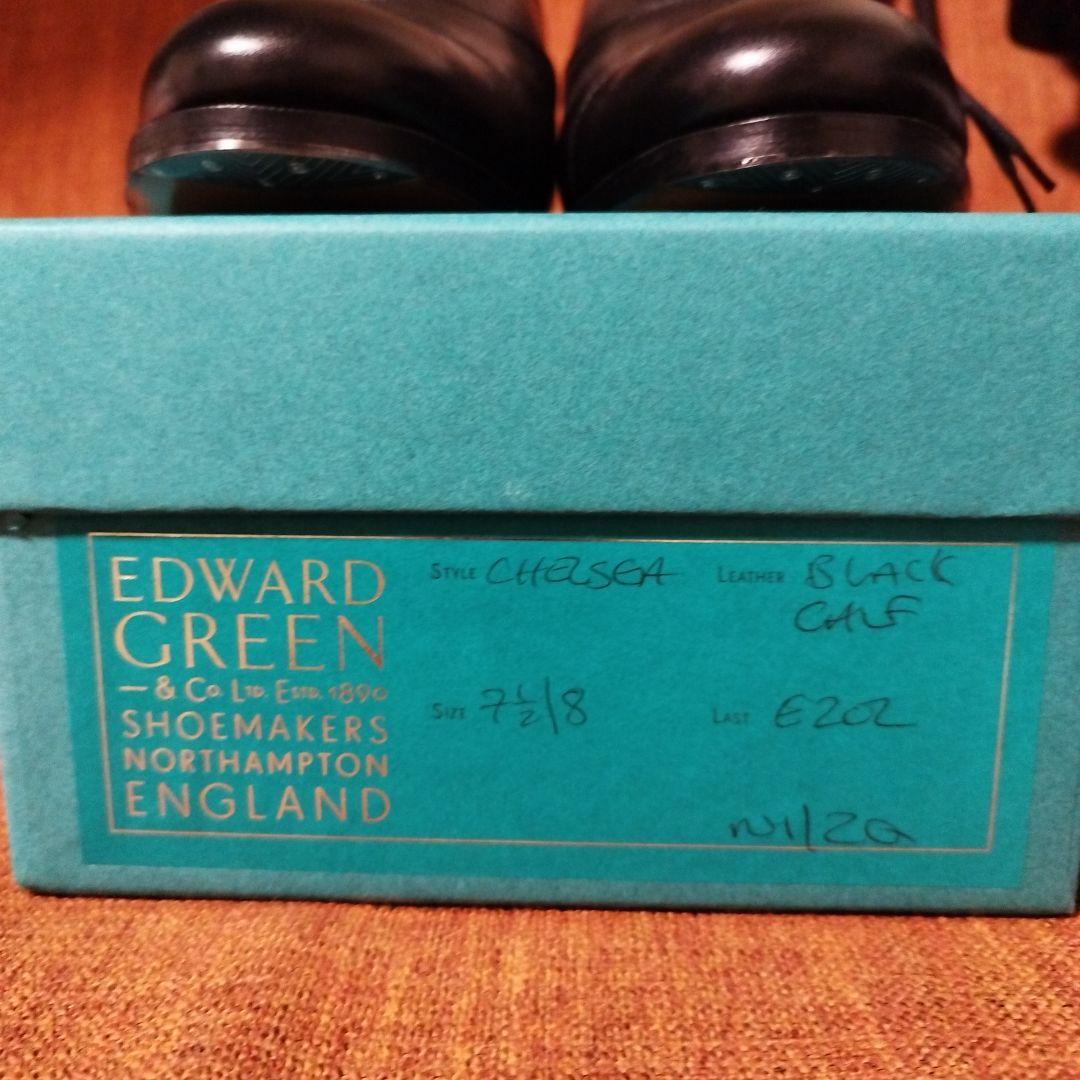 EDWARD
GREEN
— & Co. LTD. ESTD. 1890
SHOEMAKERS
NORTHAMPTON
ENGLAND
STYLE CHELSEA
LEATHER BLACK
CALF
SIZE 7½/8
LAST E202